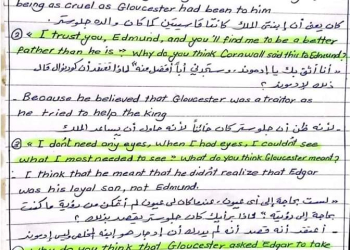 being as cruel as Gloucester had been to him
كان يعني أن إبنتي الملك كانتا قاسيتين كما كان والده جلوستر.
② « I trust you, Edmund, and you'll find me to be a better
father than he is » Why do you think Cornwall said this to Edmund?
« أنا أثق بك يا إدموند، وستجدني أباً أفضل منه » لماذا تعتقد أن كورنوال قال
ذلك لإدموند
- Because he believed that Gloucester was a traitor as
he tried to help the king.
- لأنه ظن أن جلوستر كان خائناً لأنه حاول أن يساعد الملك
③ « I don't need any eyes, when I had eyes, I couldn't see
what I most needed to see » what do you think Gloucester meant?
I think that he meant that he didn't realize that Edgar
was his loyal son, not Edmund.
« لست بحاجة إلى أى عيون، عندما كان لى عيون لم أتمكن من رؤية ما كنت
بحاجة إلى رؤيته » فماذا برأيك كان جلوستر يقصد بذلك؟
- أعتقد أنه قصد أنه لم يدرك أن إدجار هو ابنه المخلص ليس إدموند
why do you think that Gloucester asked Edgar to take